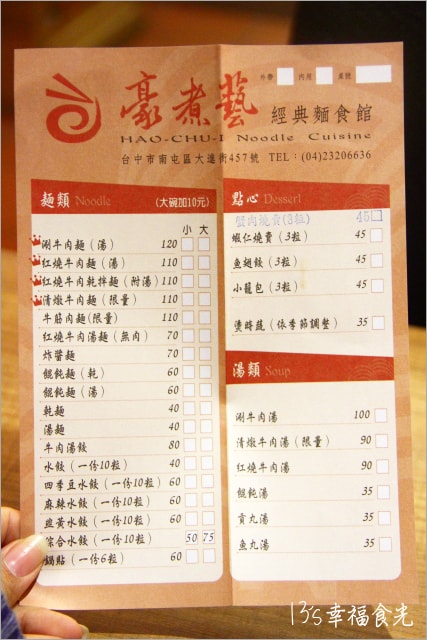 外帶 內用 桌號
豪煮藝 經典麵食館
HAO-CHU-I Noodle Cuisine
台中市南屯區大進街457號 TEL：(04)23206636
麵類 Noodle (大碗加10元)
小 大
涮牛肉麵（湯） 120
紅燒牛肉麵（湯） 110
紅燒牛肉乾拌麵（附湯） 110
清燉牛肉麵（限量） 110
牛筋肉麵(限量） 110
紅燒牛肉湯麵（無肉） 70
炸醬麵 70
餛飩麵（乾） 60
餛飩麵（湯） 60
乾麵 40
湯麵 40
牛肉湯餃 80
水餃（一份10粒） 40
四季豆水餃（一份10粒） 60
麻辣水餃（一份10粒） 60
韭黃水餃（一份10粒） 60
綜合水餃（一份10粒） 50 75
鍋貼（一份6粒） 60
點心 Dessert
蟹肉燒賣(3粒) 45
蝦仁燒賣（3粒） 45
魚翅餃（3粒） 45
小籠包（3粒） 45
燙時蔬（依季節調整） 35
湯類 Soup
涮牛肉湯 100
清燉牛肉湯（限量） 90
紅燒牛肉湯 90
餛飩湯 35
貢丸湯 35
魚丸湯 35
13's幸福食光